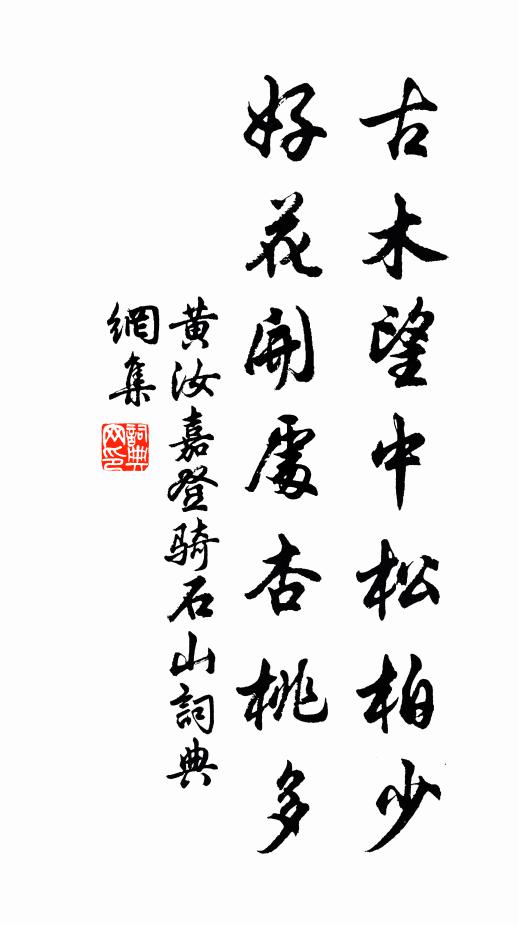 古木望中松柏少
好花開處杏桃多
黄汝嘉登骑石山詞典
網集
詞典網印